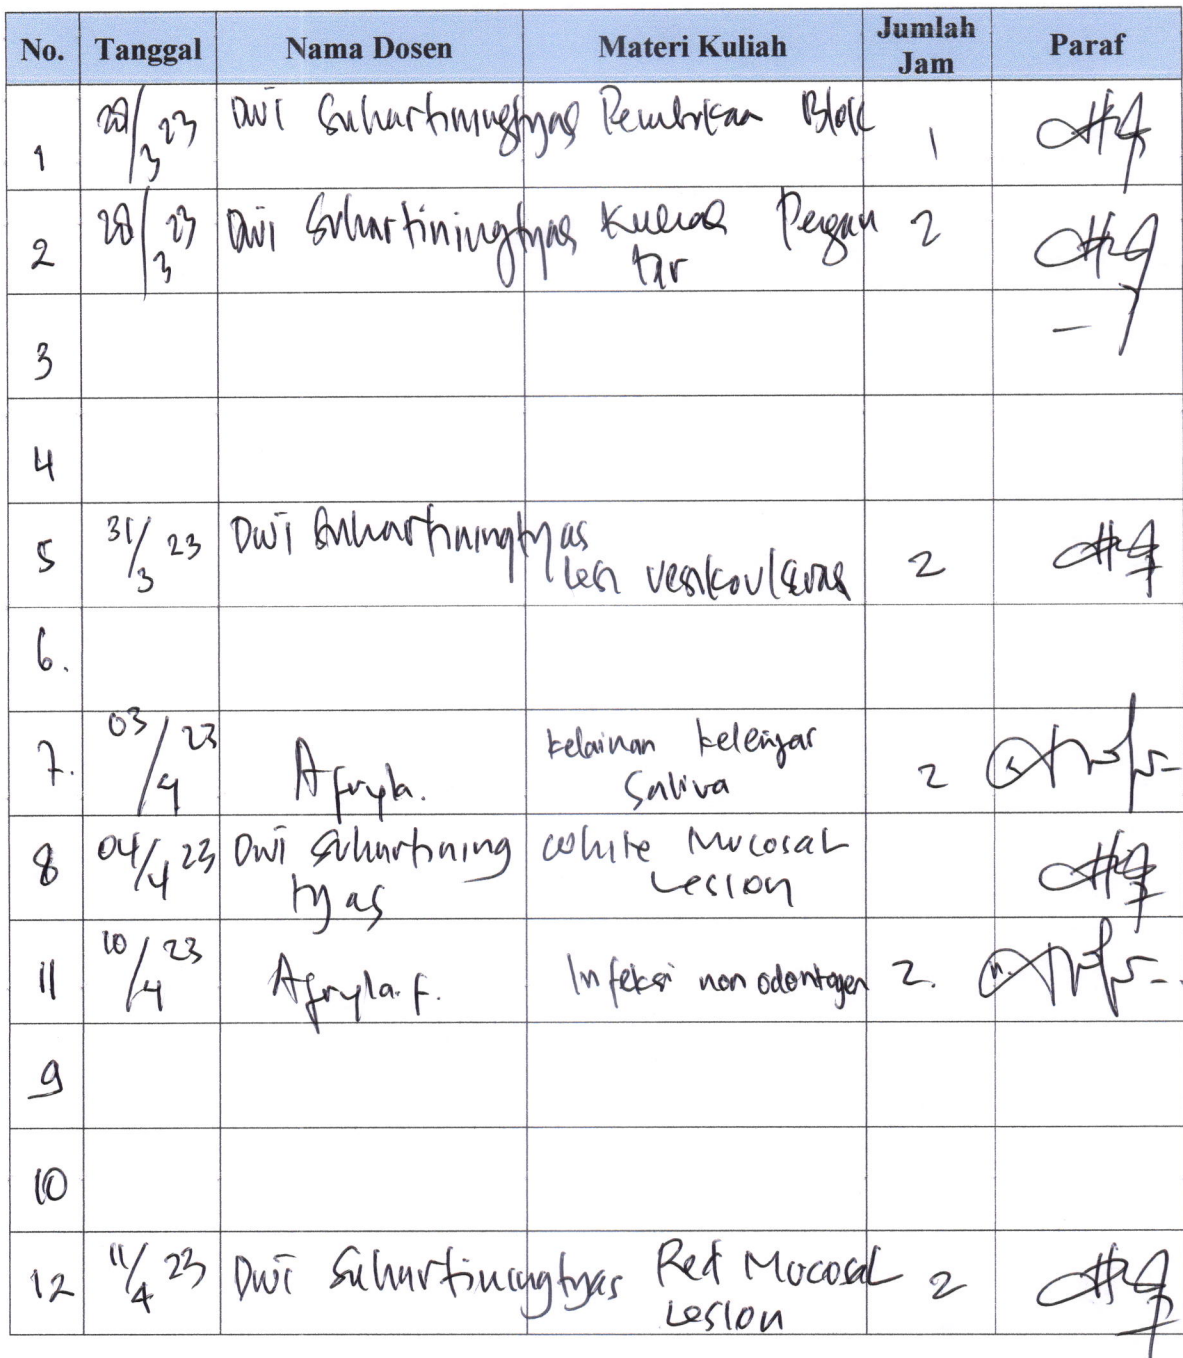 No. Tanggal Nama Dosen Materi Kuliah Jumlah Jam Paraf
1 28/3 23 Dwi Suhartiningtyas Pembukaan Blok 1
2 28/3 23 Dwi Suhartiningtyas Kuliah Pengan 2
tar
3
4
5 31/3 23 Dwi Suhartiningtyas
Lesi vesikoulseras 2
6.
7. 03/4 23 Afryla. Kelainan kelenjar
Saliva 2
8 04/4 23 Dwi Suhartining White Mucosal
tyas Lesion
11 10/4 23 Afryla. F. Infeksi non odontogen 2.
9
10
12 11/4 23 Dwi Suhartiningtyas Red Mocosal 2
Lesion